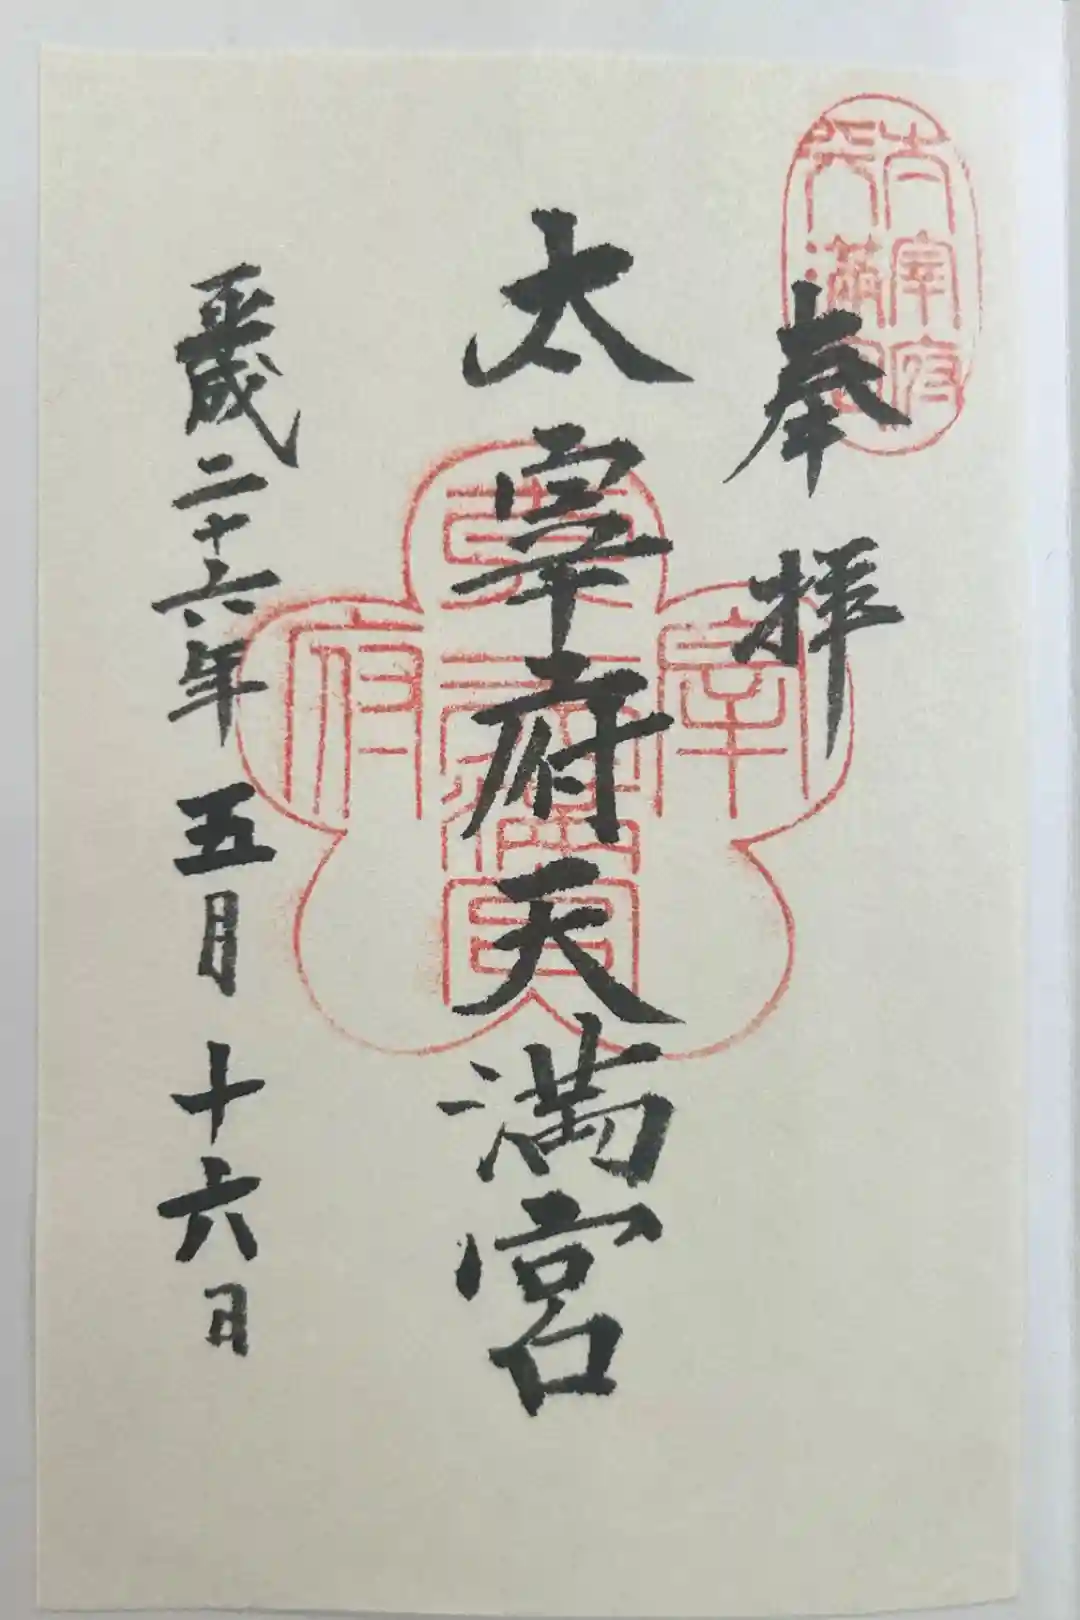 奉拝
太宰府
天満宮
太宰府天満宮
平成二十六年五月十六日